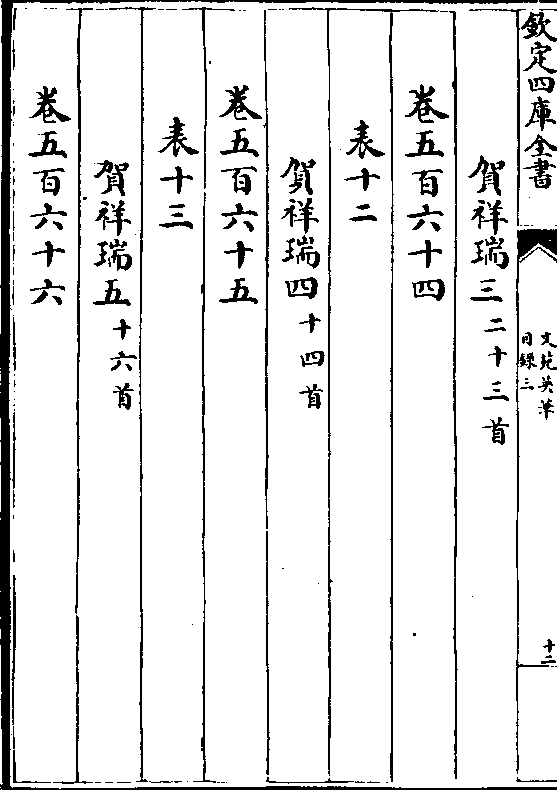 欽定四庫全書
文苑英華
目録三
十二
賀祥瑞三二十三首
卷五百六十四
表十二
賀祥瑞四十四首
卷五百六十五
表十三
賀祥瑞五十六首
卷五百六十六